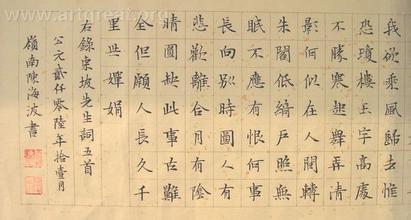 我欲乘風歸去惟
恐瓊樓玉宇高處
不勝寒起舞弄清
影何似在人間轉
朱閣低綺戶照無
眠不應有恨何事
長向別時圓人有
悲歡離合月有陰
晴圓缺此事古難
全但願人長久千
里共嬋娟
右錄東坡先生詞五首
公元貳仟零陸年拾壹月
嶺南陳海波書